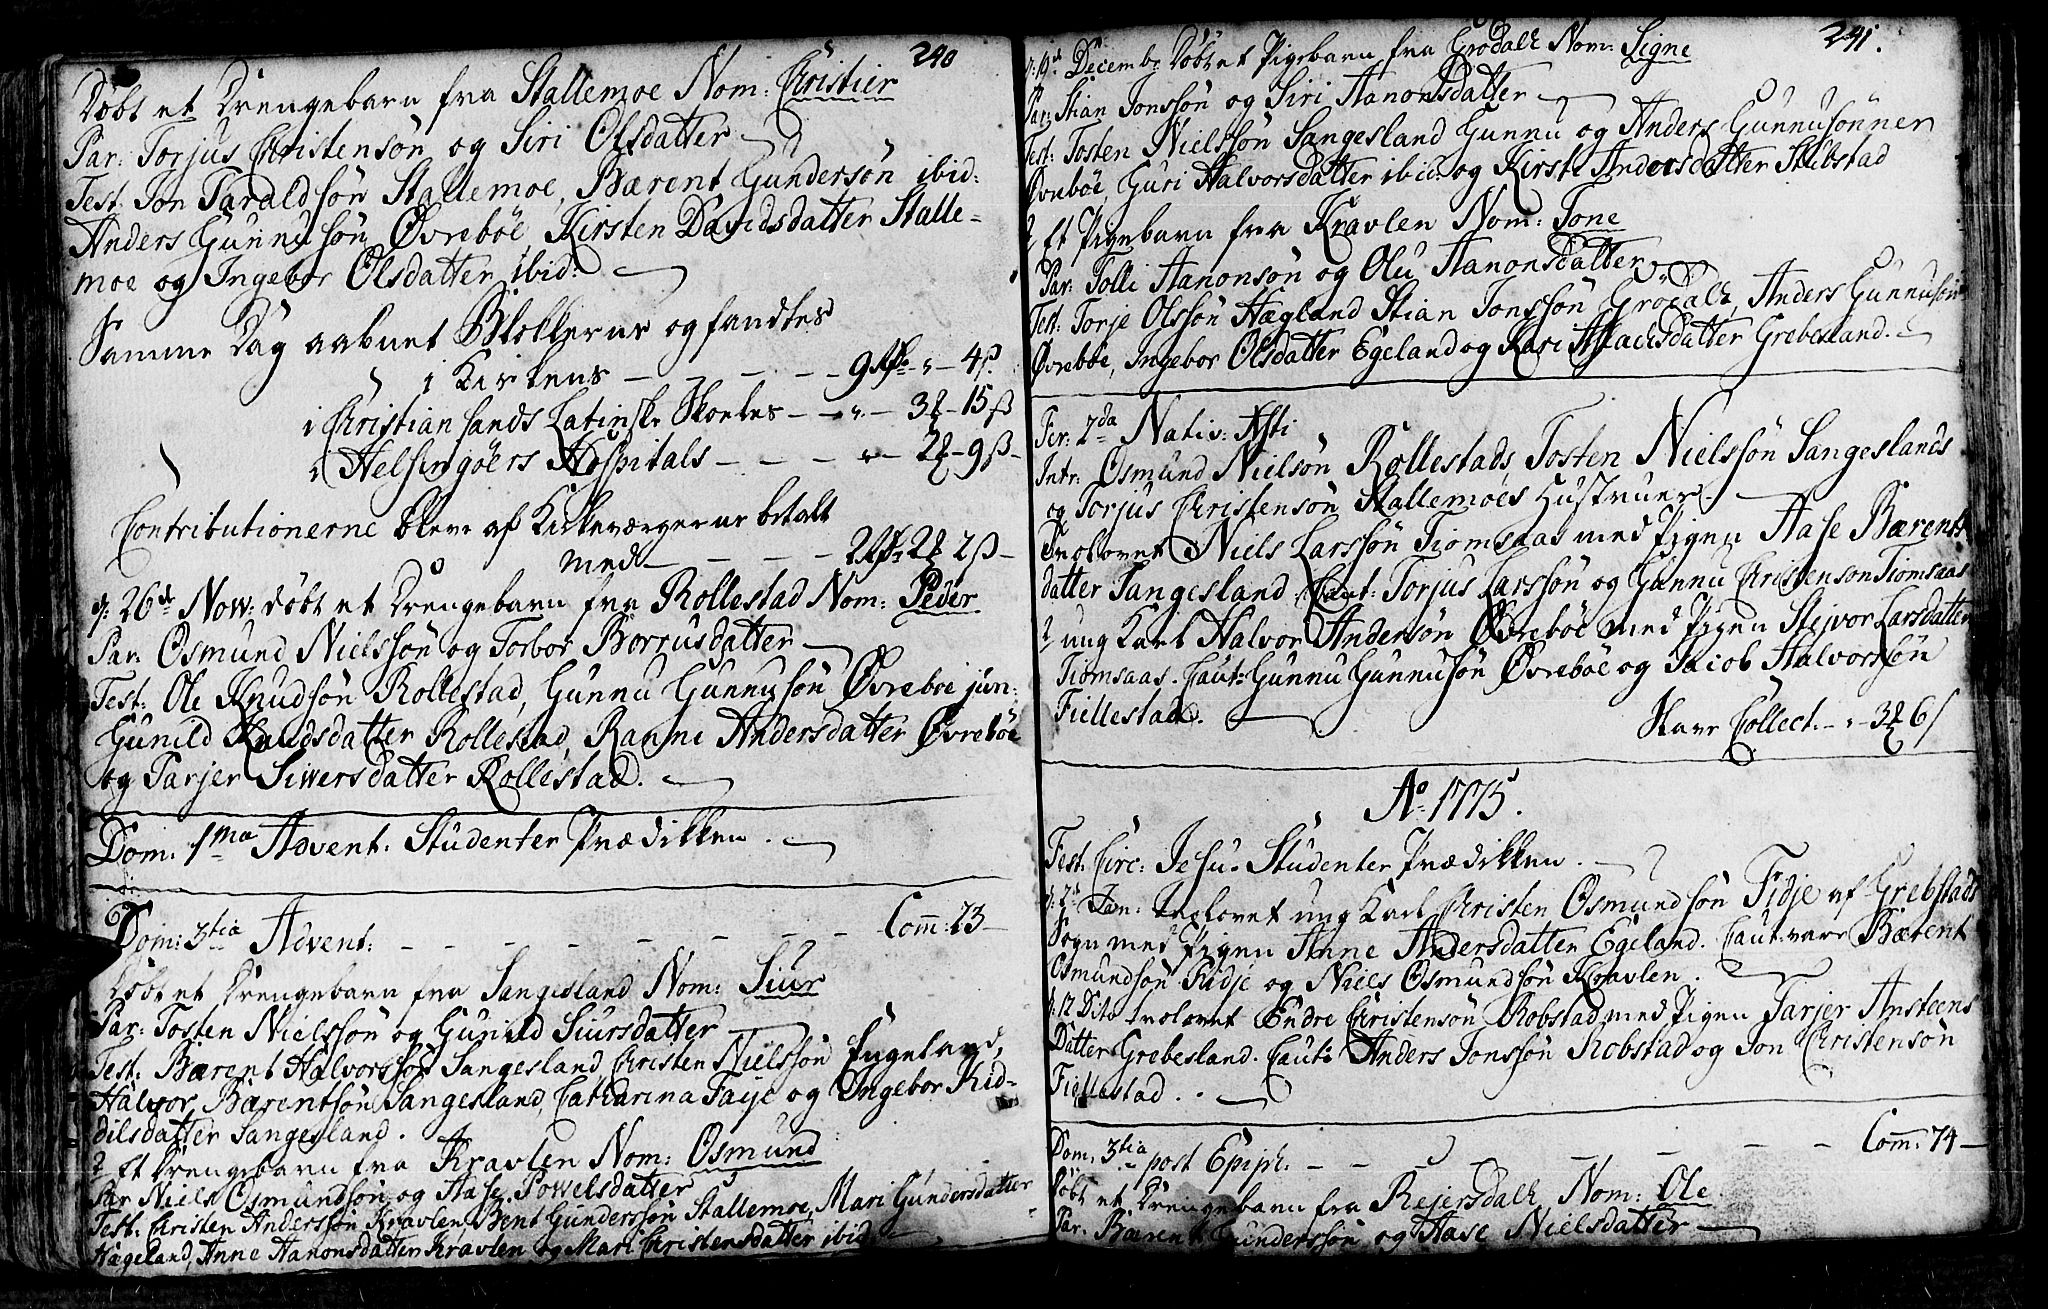 240
Döbt et Drengebarn fra Stallemoe Nom: Christier
Par: Torjus Christensön og Siri Olsdatter
Test: Jon Taraldsön Stallemoe, Bærent Gundersön ibid:
Anders Gunnusön Övreböe, Kirsten Davidsdatter Stalle-
moe og Ingebor Olsdatter ibid:
Samme Dag aabnet Blokkerne og fandtes
i Kirkens 4ß
i Christiansands Latinske Skoeles 3 15ß
i Helsingöers Hospitals 2 9ß
Contributionerne bleve af Kirkeværgerne betalt
med 2 2 2ß
d: 26de Now: döbt et Drengebarn fra Rollestad Nom: Peder
Par: Osmund Nielssön og Torbor Borrusdatter
Test: Ole Knudsön Rollestad, Gunnu Gunnusön Övreböe jun:
Gunild Knudsdatter Rollestad, Ranni Andersdatter Övreböe
og Tarjer Siwersdatter Rollestad.
Dom: 1ma Advent: Studenter Prædikken.
Dom: 3tia Advent: Com̄: 73
Döbt et Drengebarn fra Sangesland Nom: Siur
Par: Tosten Nielssön og Gunild Siursdatter
Test: Bærent Halvorssön Sangesland, Christen Nielssön Engeland,
Halvor Bærentsön Sangesland, Catharina Faye og Ingebor Kid-
dilsdatter Sangesland.
2 Et Drengebarn fra Kravlen Nom: Osmund
Par Niels Osmundsön og Aase Powelsdatter
Test: Christen Anderssön Kravlen, Bent Gunderssön Stallemoe, Mari Gundersdatter
Hageland, Anne Aanonsdatter Kravlen og Mari Christensdatter ibid:
241.
d: 19de Decembr Döbt et Pigebarn fra Grodalk Nom: Signe
Par: Stian Jonssön og Siri Aanonsdatter
Test: Tosten Nielssön Sangesland Gunnu og Anders Gunnusönner
Övreböe, Guri Halvorsdatter ibid: og Kirsti Andersdatter Skibstad
2 Et Pigebarn fra Kravlen Nom: Tone
Par: Tolli Aanonsön og Olu Aanonsdatter
Test: Torje Olssön Hægland Stian Jonssön Grodalk, Anders Gunnusön
Övreböe, Ingebor Olsdatter Egeland og Kari Aslachsdatter Grebesland.
Fer: 2da Nativ: Xsti
Intr: Osmund Nielsön Rollestads, Tosten Nielssön Sangeslands
og Torjus Christensön Stallemoes Hustruer.
Trolovet Niels Larssön Tiomsaas med Pigen Aase Bærents-
datter Sangesland. Caut: Torjus Larssön og Gunnu Christenson Tiomsaas
2 ung Karl Halvor Andersön Övreböe med Pigen Stejvor Larsdatter
Tiomsaas. Caut: Gunnu Gunnusön Övreböe og Jacob Halvorssön
Fiellestad.
Tavle Collect. 3 6ß
Ao 1775.
Fest: Circ: Jesu. Studenter Prædikken.
d: 2d Jan: trolovet ung Karl Christen Osmundsön Fidje af Grebstads
Sogn med Pigen Anne Andersdatter Egeland. Caut: vare Bærent
Osmundsön Fidje og Niels Osmundsön Kravlen.
d: 12 Dito trolovet Endre Christensön Robstad med Pigen Tarjer Ansteens
Datter Grebesland. Caut: Anders Jonssön Robstad og Jon Christensön
Fiellestad.
Dom: 3tia post Epiph: Com̄: 74
Döbt et Drengebarn fra Rejersdalk Nom: Ole
Par: Bærent Gunderssön og Aase Nielsdatter